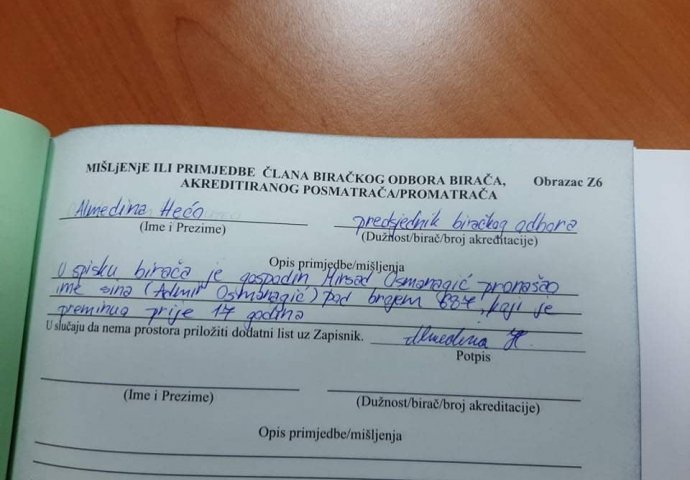 MIŠLjENjE ILI PRIMJEDBE ČLANA BIRAČKOG ODBORA BIRAČA, Obrazac Z6
AKREDITIRANOG POSMATRAČA/PROMATRAČA
Almedina Hećo predsjednik biračkog odbora
(Ime i Prezime) (Dužnost/birač/broj akreditacije)
Opis primjedbe/mišljenja
U spisku birača je gospodin Mirsad Osmanagić pronašao
ime sina (Admir Osmanagić) pod brojem 837, koji je
preminuo prije 17 godina
U slučaju da nema prostora priložiti dodatni list uz Zapisnik. Almedina H.
Potpis
(Ime i Prezime) (Dužnost/birač/broj akreditacije)
Opis primjedbe/mišljenja